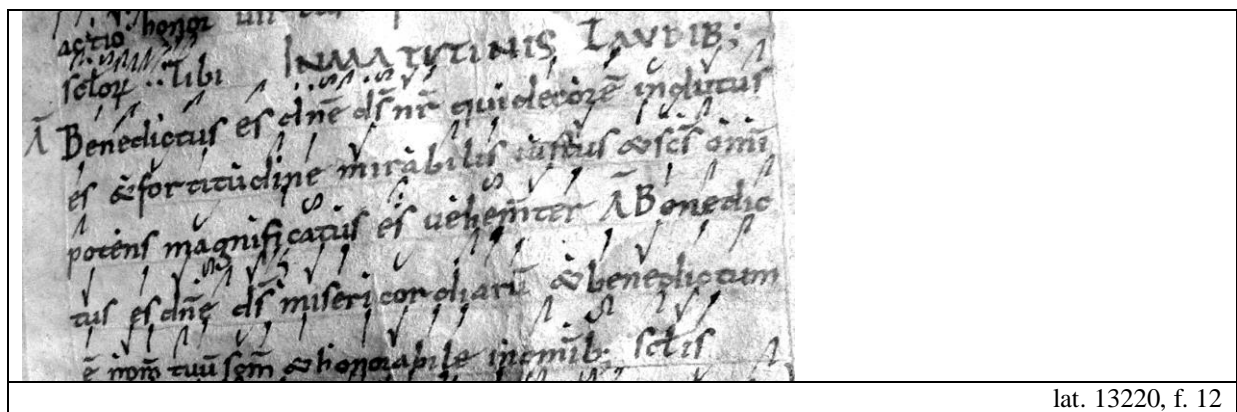 actio honor
IN MATUTINIS LAUDIB;
scloꝝ tibi
Ā Benedictus es dn̄e ds̄ nr̄ qui decorē inditus
es & fortitudine mirabilis iustus & scs̄ omi
potens magnificatus es uehem̄ter Ā Benedic
tus es dn̄e ds̄ misericordiarū & benedictum
ē nom̄ tuū scm̄ & honorabile in omib; sclis
lat. 13220, f. 12